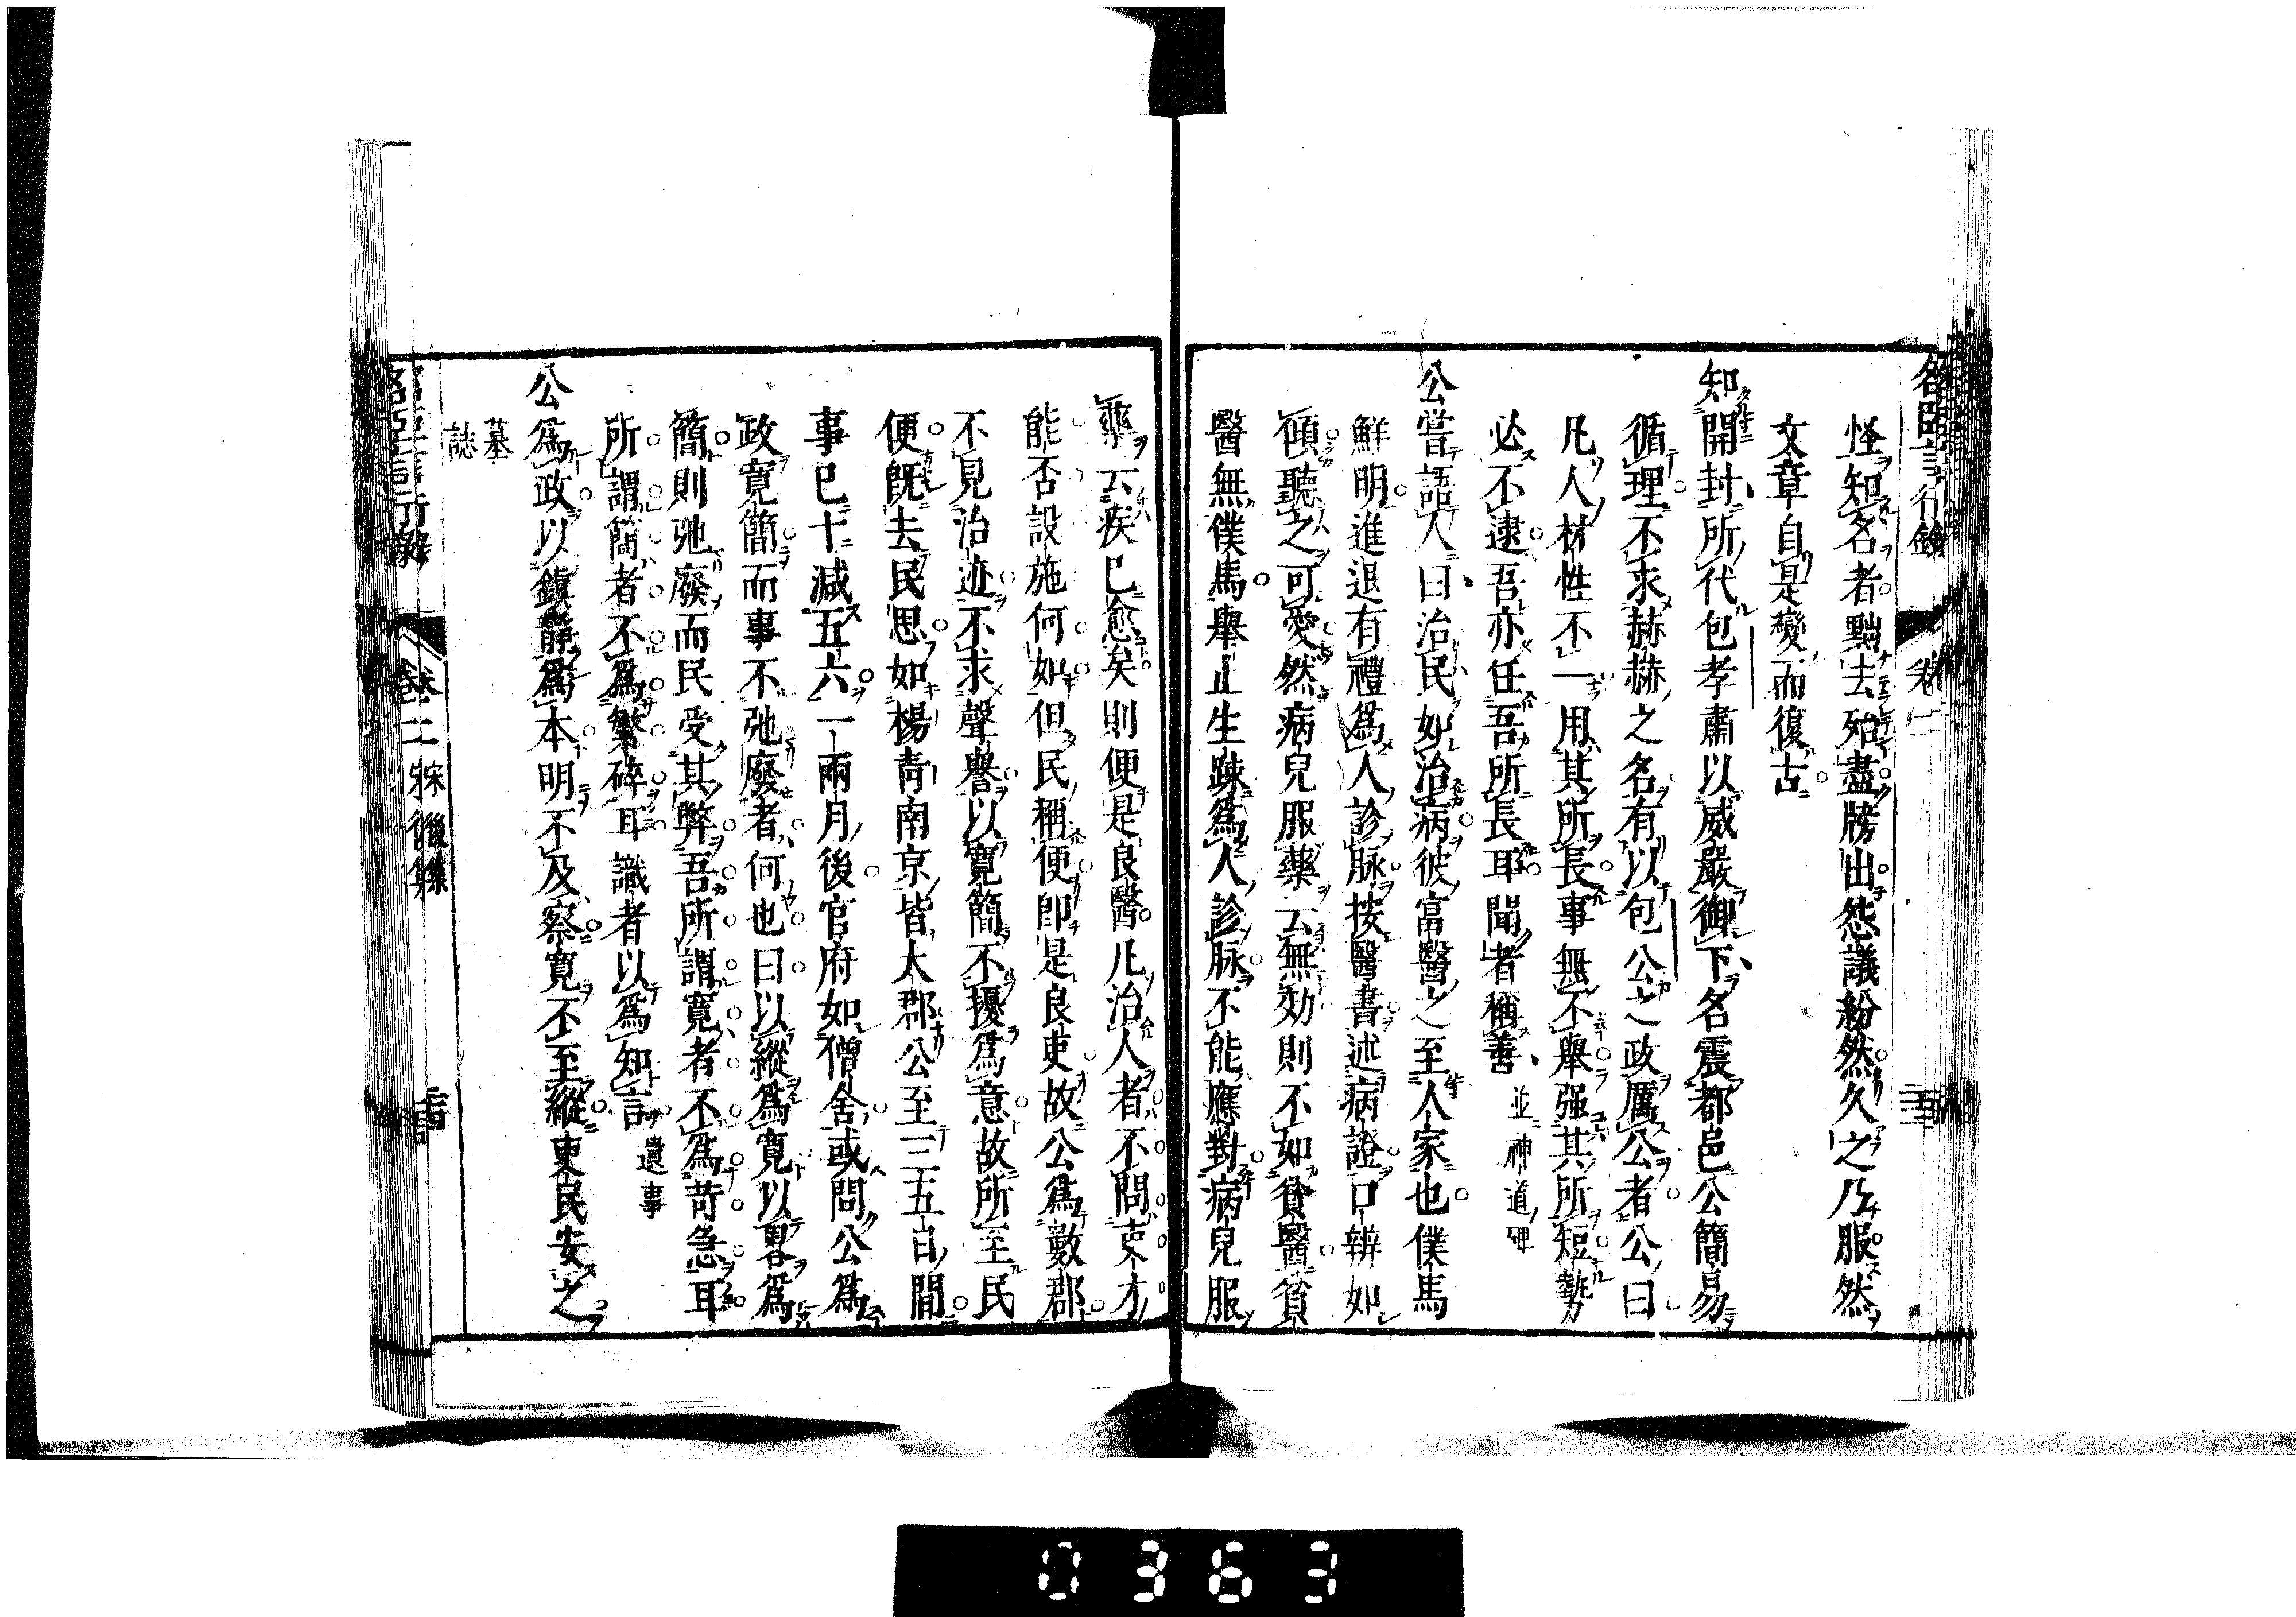 怪知名者黜去殆盡牓出怨議紛然久之乃服然
文章自是變而復古
知開封所代包孝肅以威嚴御下名震都邑公簡易
循理不求赫赫之名有以包公之政厲公者公曰
凡人材性不一用其所長事無不舉强其所短勢
必不逮吾亦任吾所長耳聞者稱善 並神道碑
公嘗語人曰治民如治病彼富醫之至人家也僕馬
鮮明進退有禮爲人診脉按醫書述病證口辨如
傾聽之可愛然病兒服藥云無効則不如貧醫貧
醫無僕馬舉止生踈爲人診脉不能應對病兒服
藥云疾已愈矣則便是良醫凡治人者不問吏才
能否設施何如但民稱便即是良吏故公爲數郡
不見治迹不求聲譽以寛簡不擾爲意故所至民
便既去民思如楊青南京皆大郡公至三五日間
事已十减五六一兩月後官府如僧舍或問公爲
政寛簡而事不弛廢者何也曰以縱爲寛以畧爲
簡則弛廢而民受其弊吾所謂寛者不爲苛急耳
所謂簡者不爲繁碎耳識者以爲知言 遺事
公爲政以鎭静爲本明不及察寛不至縱吏民安之
墓
誌
卷二 宋後集
0363